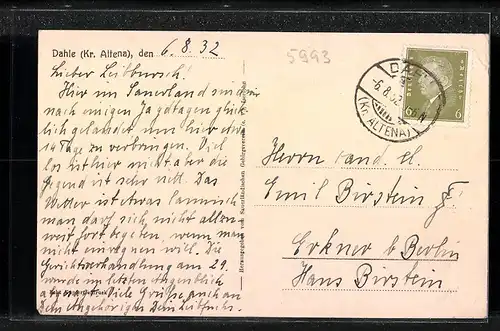 Dahle (Kr. Altena), den 6.8.32
5993
Lieber Leibbursch!
Hier im Sauerland sind wir
nach einigen Jagdtagen glück-
lich gelandet, um hier etwa
14 Tage zu verbringen. Viel
los ist hier nicht, aber die
Gegend ist sehr nett. Das
Wetter ist etwas launisch
man darf sich nicht allzu
weit fort begeben, wenn man
nicht einregnen will. Die
Gerichtsverhandlung am 29.
wurde im letzten Augenblick
Viele Grüße, auch an
Deine Angehörigen Dein Leibfuchs.
Herausgegeben vom Sauerländischen Gebirgsverein
DEUTSCHES REICH
6 6
-6.8.32
(Kr. ALTENA)
Herrn cand.
Emil Birstein
Erkner b. Berlin
Haus Birstein